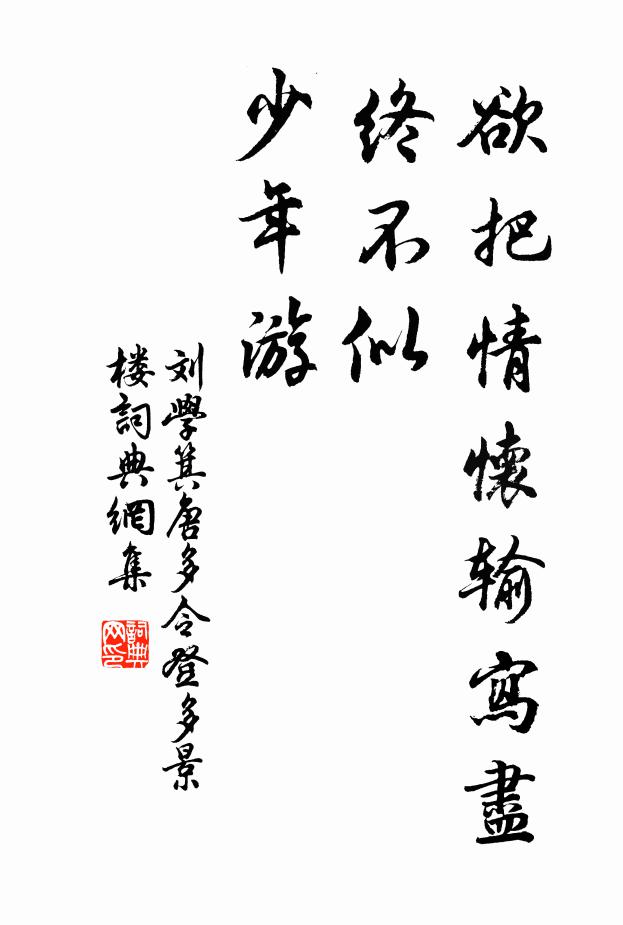 欲把情懷输寫盡
終不似
少年游
刘學箕唐多令登多景
楼詞典網集
詞典
网印